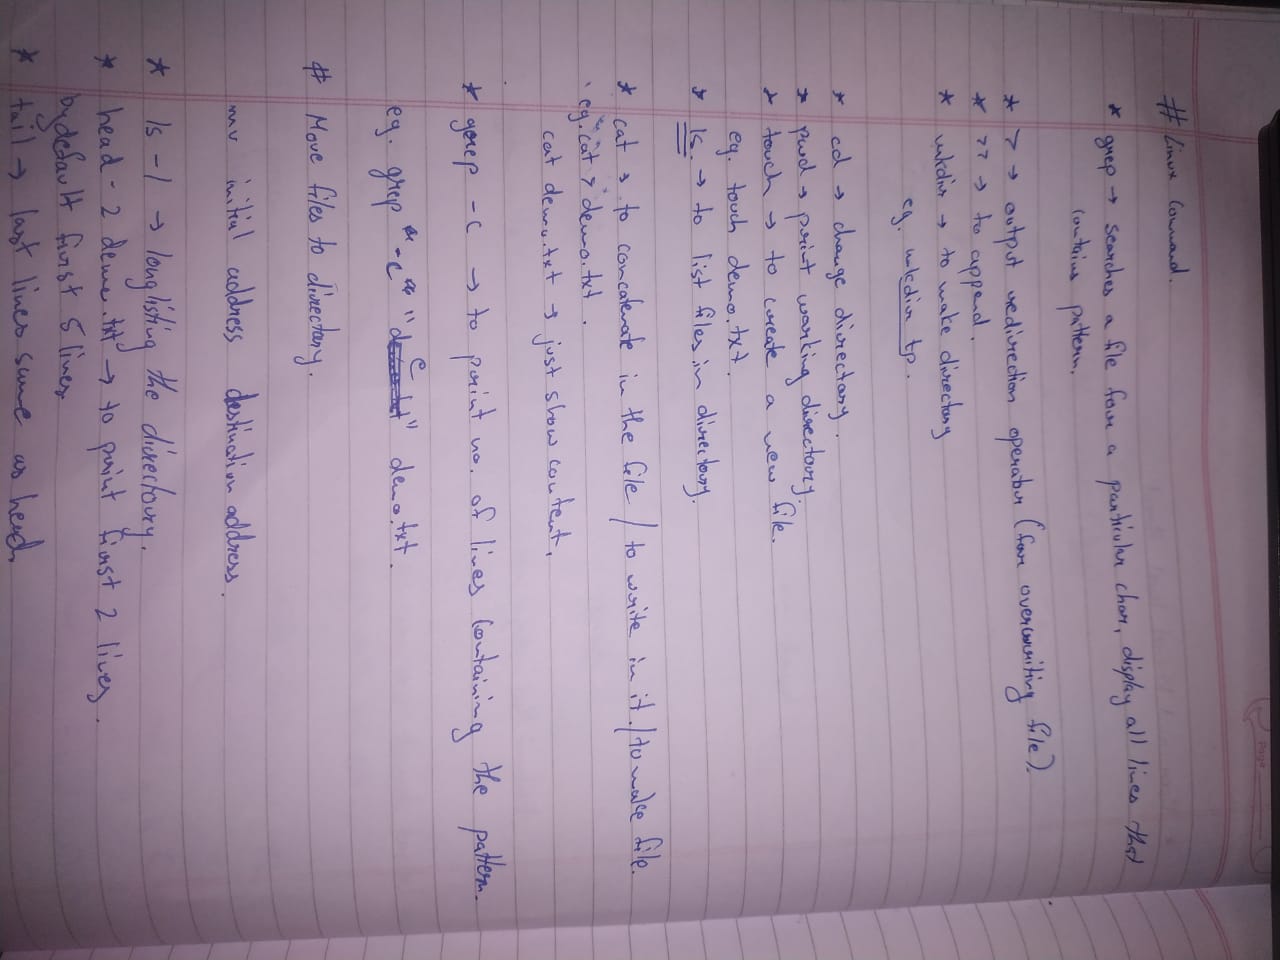 # Linux Command.
* grep → searches a file for a particular char, display all lines that
contains pattern.
* > → output redirection operator (for overwriting file).
* >> → to append.
* mkdir → to make directory
eg. mkdir tp.
* cd → change directory.
* pwd → print working directory.
* touch → to create a new file.
eg. touch demo.txt.
* ls. → to list files in directory.
* cat → to concatenate in the file / to write in it. / to make file.
eg. cat > demo.txt.
cat demo.txt → just show content.
* grep -c → to print no. of lines containing the pattern.
eg. grep "-c" "c" demo.txt.
# Move files to directory.
mv initial address destination address.
* ls -l → longlisting the directory.
* head -2 demo.txt → to print first 2 lines.
bydefault first 5 lines
* tail → last lines same as head